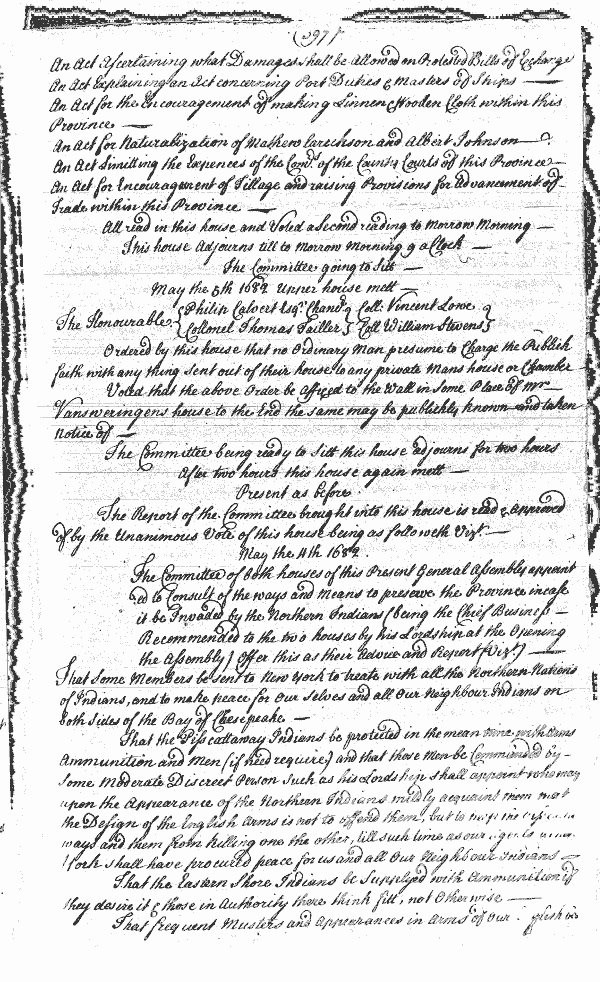 (397)
An Act Ascertaining what Damages shall be allowed on Protested Bills of Exchange
An Act Explaining an Act concerning Port Duties & Masters of Ships —
An Act for the Encouragement of making Linnen & Woolen Cloth within this
Province —
An Act for Naturalization of Mathew Carechson and Albert Johnson —
An Act Limitting the Expences of the Com.rs of the County Courts of this Province —
An Act for Encouragement of Tillage and raising Provisions for Advancement of
Trade within this Province —
All read in this house and Voted a Second reading to Morrow Morning —
This house Adjourns till to Morrow Morning 9 a Clock —
The Committee going to Sitt —
May the 5th 1682 Upper house mett —
The Honourable { Philip Calvert Esqr. Chancr. Coll: Vincent Lowe
Collonel Thomas Tailler } Coll William Stevens }
Ordered by this house that no Ordinary Man presume to Charge the Publick
faith with any thing sent out of their house to any private Mans house or Chamber
Voted that the above Order be affixed to the Wall in Some Place of Mr —
Vansweringens house to the End the same may be publickly known and taken
notice of —
The Committee being ready to Sitt this house adjourns for two hours
After two hours this house again mett —
Present as before
The Report of the Committee brought into this house is read & approved
of by the Unanimous Vote of this house being as followeth Vizt. —
May the 4th 1682.
The Committee of both houses of this Present General Assembly appoint
ed to Consult of the ways and Means to preserve the Province incase
it be Invaded by the Northern Indians (being the Chief Business —
Recommended to the two houses by his Lordship at the Opening
the Assembly) Offer this as their Advice and Report (Vizt.) —
That Some Members be sent to New York to treate with all the Northern Nations
of Indians, and to make peace for Our Selves and all Our Neighbour Indians on
both Sides of the Bay of Chesepeake —
That the Piscattaway Indians be protected in the mean time with Arms
Ammunition and Men (if need require) and that those Men be Commanded by —
Some Moderate Discreet Person Such as his Lordship shall appoint who may
upon the Appearance of the Northern Indians mildly acquaint them that
the Design of the English Arms is not to offend them, but to
ways and them from killing one the other, till such time as our
York shall have procured peace for us and all Our Neighbour Indians —
That the Eastern Shore Indians be Supplyed with Ammunition if
they desire it & those in Authority there think fitt, not Otherwise —
That frequent Musters and Appearances in Arms of Our